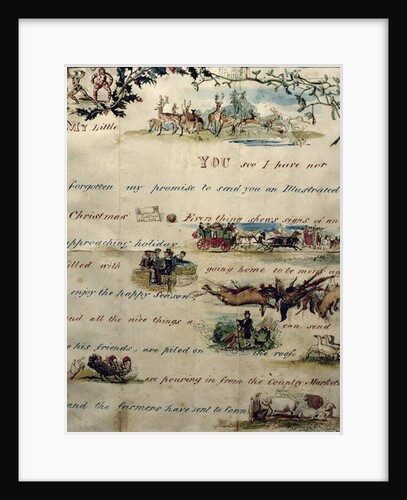 MY little
YOU see I have not
forgotten my promise to send you an Illustrated
Christmas Everything shews signs of an
approaching holiday
filled with going home to be merry an
enjoy the happy Season,
and all the nice things a can send
to his friends, are piled on the roofs
are pouring in from the Country Markets
and the farmers have sent to town